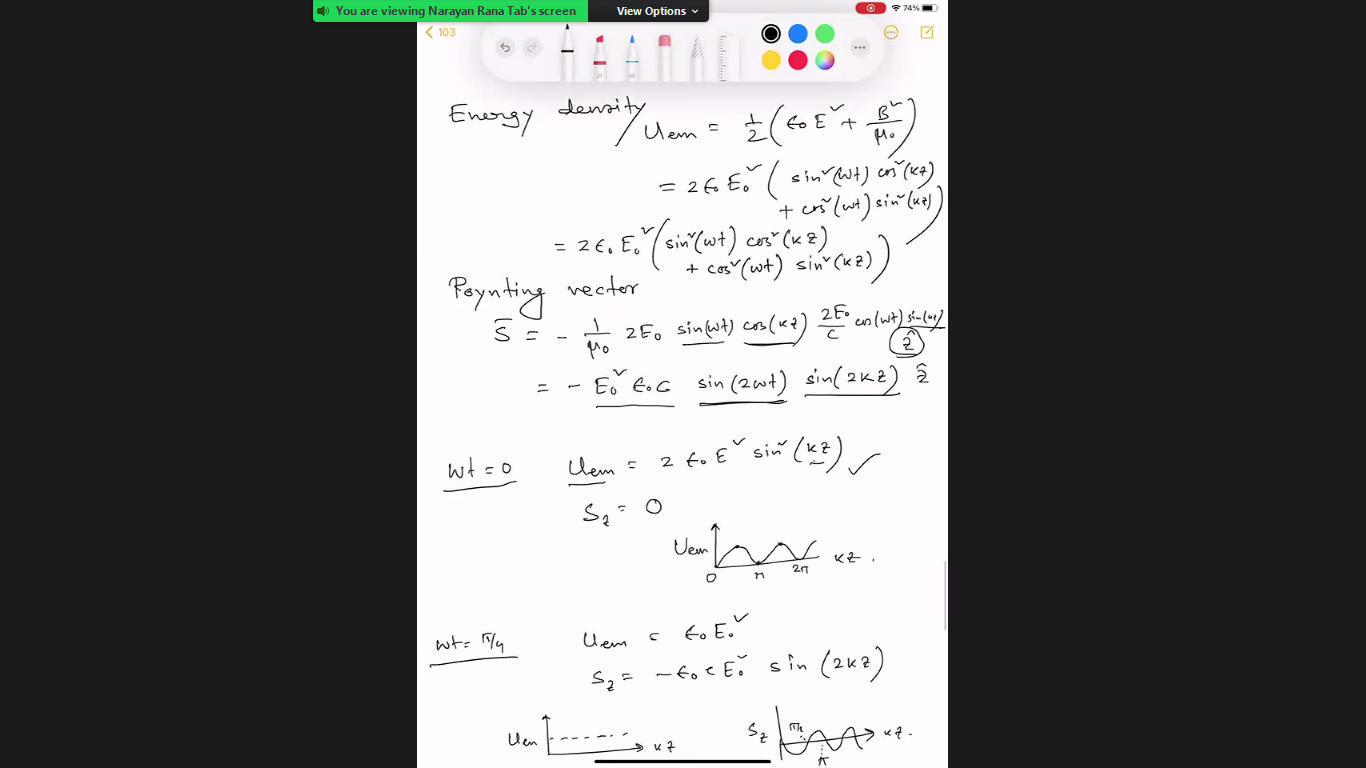 You are viewing Narayan Rana Tab's screen
View Options
74%
103
Energy density / Uem = 1/2 (ϵ0 E² + B²/μ0)
= 2ϵ0 E0² ( sin²(wt) cos²(kz)
+ cos²(wt) sin²(kz) )
= 2ϵ0 E0² ( sin²(wt) cos²(kz)
+ cos²(wt) sin²(kz) )
Poynting vector
S̄ = - 1/μ0 2E0 sin(wt) cos(kz) 2E0/c cos(wt)
ẑ
= - E0² ϵ0 c sin(2wt) sin(2kz) ẑ
wt = 0 Uem = 2 ϵ0 E² sin²(kz) ✓
Sz = 0
Uem
0 π 2π kz .
wt = π/4 Uem = ϵ0 E0²
Sz = -ϵ0 c E0² sin (2kz)
Uem kz
Sz π/2 π kz .